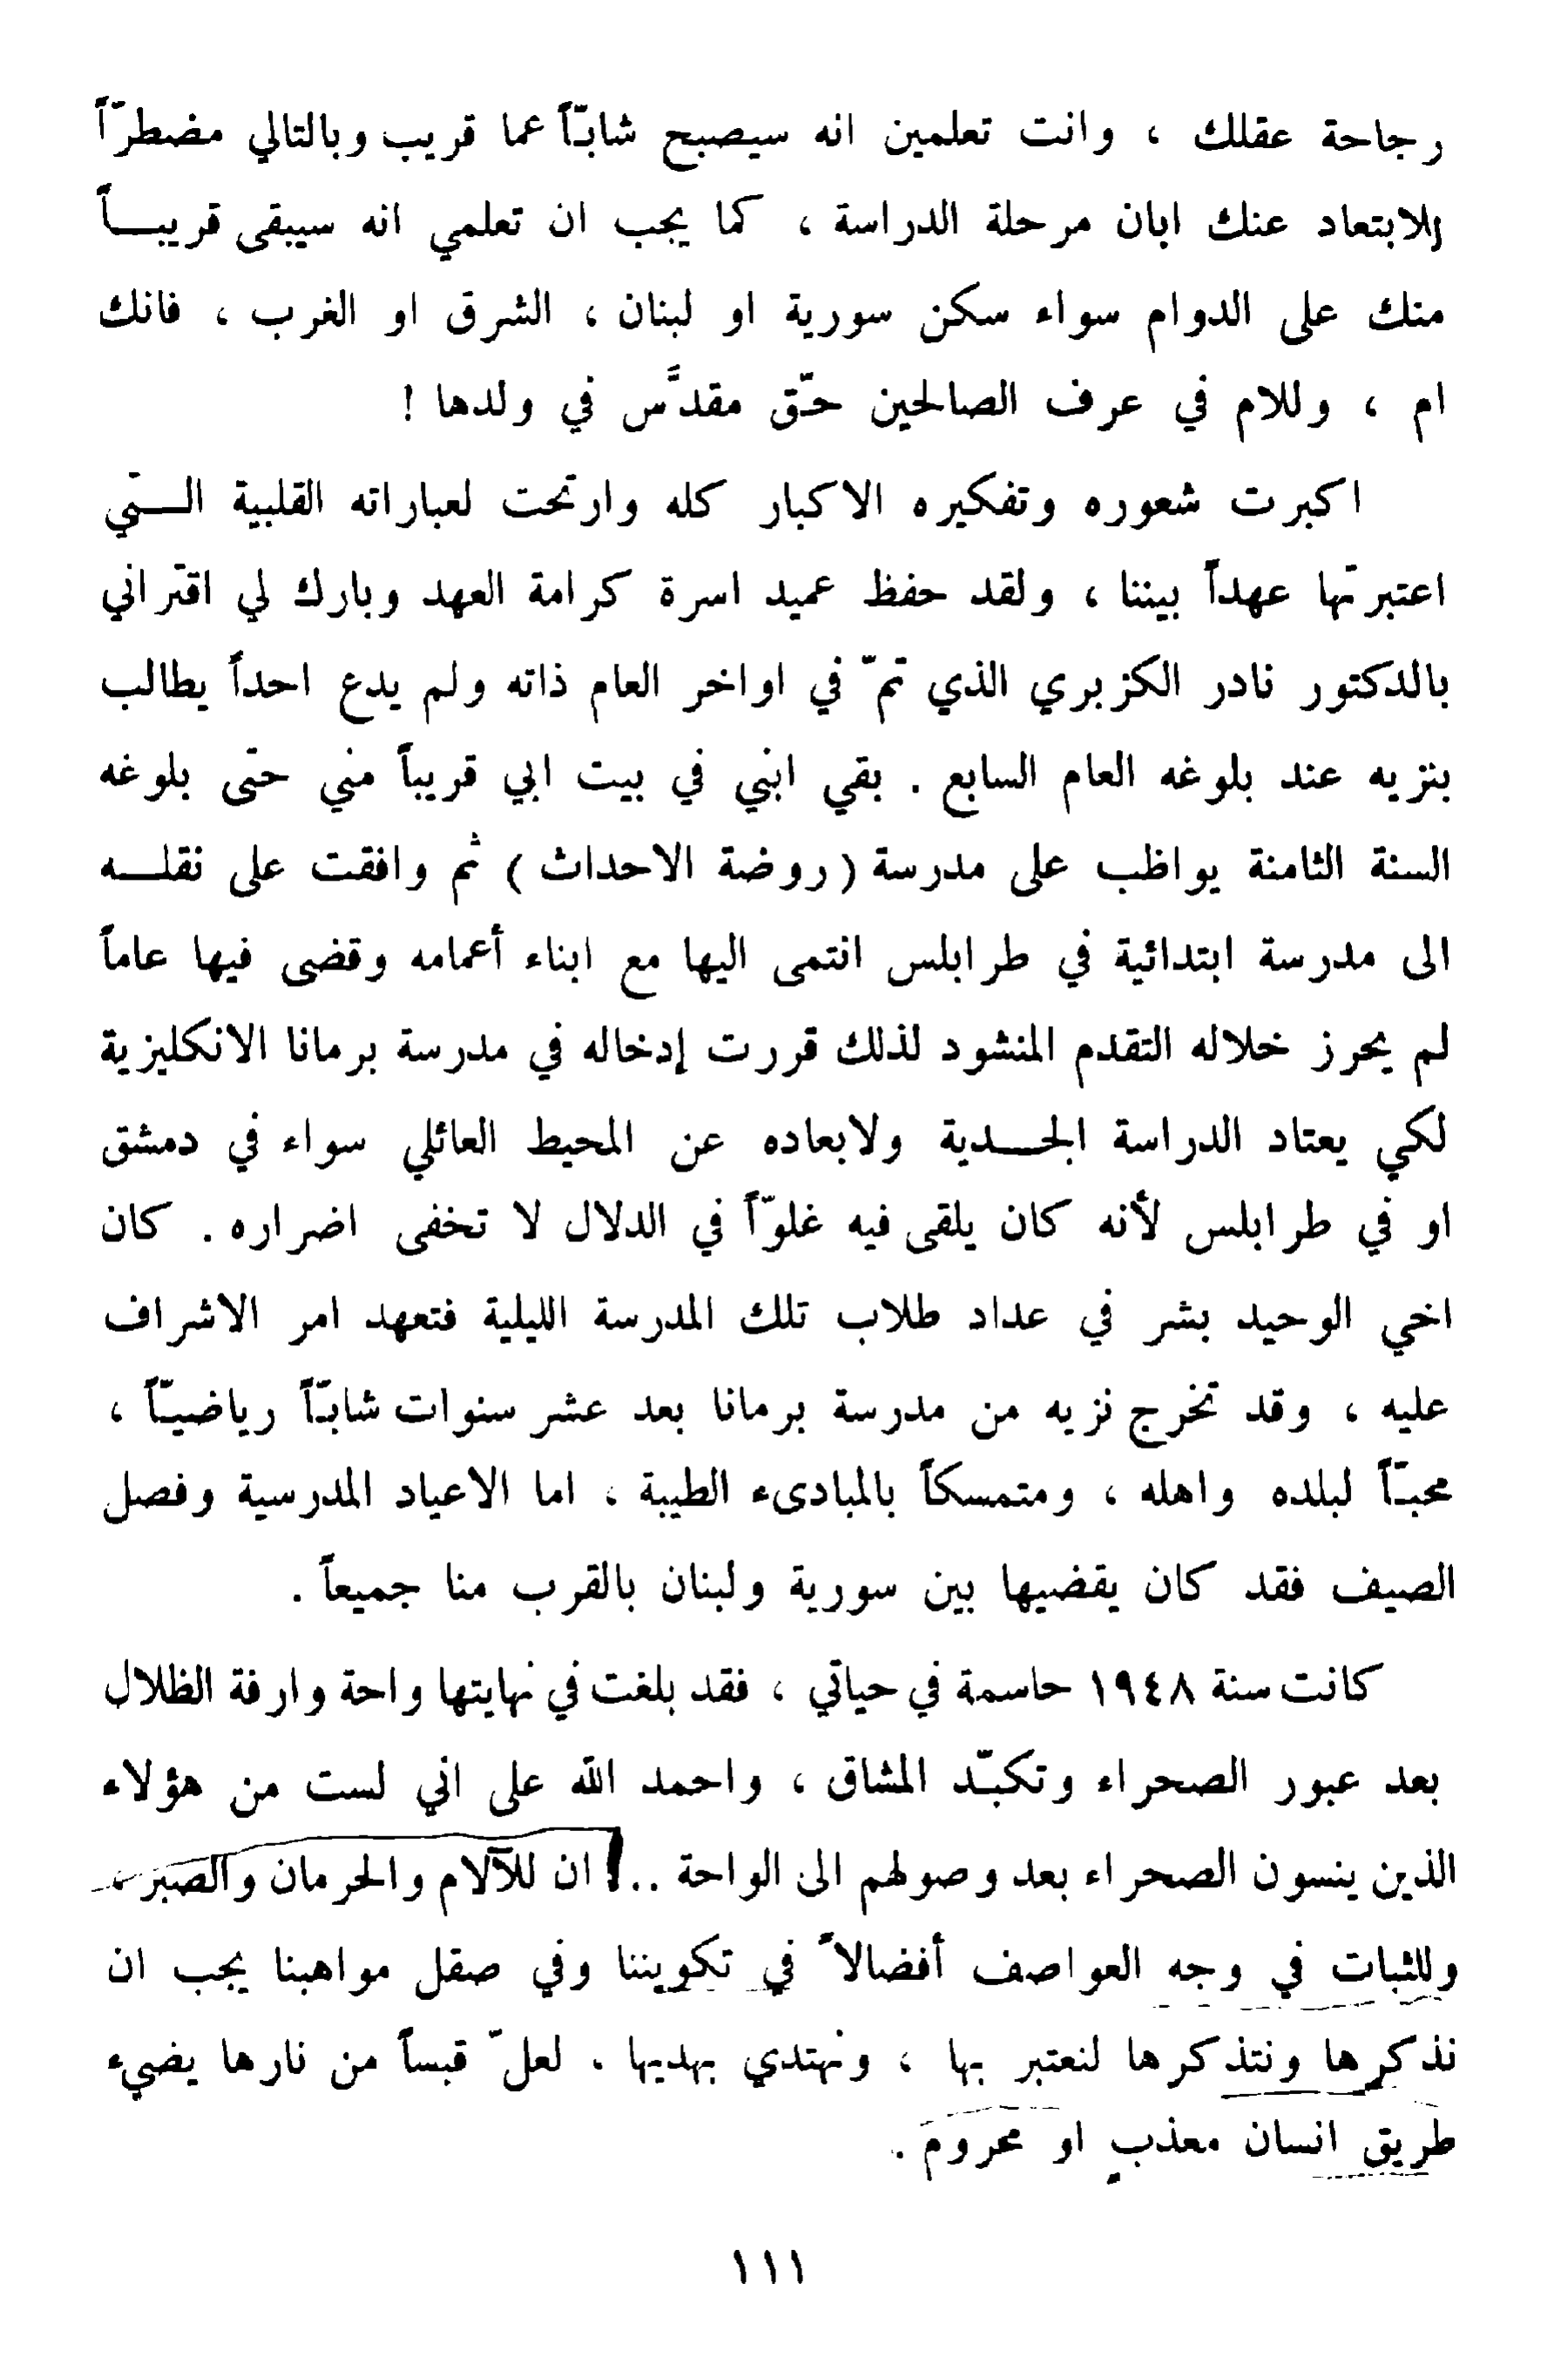 رجاحة عقلك ، وانت تعلمين انه سيصبح شابّاً عما قريب وبالتالي مضطرّاً
للابتعاد عنك ابان مرحلة الدراسة ، كما يجب ان تعلمي انه سيبقى قريبـــاً
منك على الدوام سواء سكن سورية او لبنان ، الشرق او الغرب ، فانك
ام ، وللام في عرف الصالحين حقّ مقدَّس في ولدها !
اكبرت شعوره وتفكيره الاكبار كله وارتحت لعباراته القلبية الـــتي
اعتبرتها عهداً بيننا ، ولقد حفظ عميد اسرة كرامة العهد وبارك لي اقتراني
بالدكتور نادر الكزبري الذي تمّ في اواخر العام ذاته ولم يدع احداً يطالب
بنزيه عند بلوغه العام السابع . بقي ابني في بيت ابي قريباً مني حتى بلوغه
السنة الثامنة يواظب على مدرسة ( روضة الاحداث ) ثم وافقت على نقلـــه
الى مدرسة ابتدائية في طرابلس انتمى اليها مع ابناء أعمامه وقضى فيها عاماً
لم يحرز خلاله التقدم المنشود لذلك قررت إدخاله في مدرسة برمانا الانكليزية
لكي يعتاد الدراسة الجـــدية ولابعاده عن المحيط العائلي سواء في دمشق
او في طرابلس لأنه كان يلقى فيه غلوّاً في الدلال لا تخفى اضراره . كان
اخي الوحيد بشر في عداد طلاب تلك المدرسة الليلية فتعهد امر الاشراف
عليه ، وقد تخرج نزيه من مدرسة برمانا بعد عشر سنوات شابّاً رياضيّاً ،
محبّاً لبلده واهله ، ومتمسكاً بالمبادىء الطيبة ، اما الاعياد المدرسية وفصل
الصيف فقد كان يقضيها بين سورية ولبنان بالقرب منا جميعاً .
كانت سنة ١٩٤٨ حاسمة في حياتي ، فقد بلغت في نهايتها واحة وارفة الظلال
بعد عبور الصحراء وتكبّد المشاق ، واحمد الله على اني لست من هؤلاء
الذين ينسون الصحراء بعد وصولهم الى الواحة ..! ان للآلام والحرمان والصبر ،
وللثبات في وجه العواصف أفضالاً في تكويننا وفي صقل مواهبنا يجب ان
نذكرها ونتذكرها لنعتبر بها ، ونهتدي بهديها . لعلّ قبساً من نارها يضيء
طريق انسان معذبٍ او محروم .
١١١